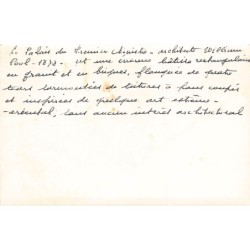 Le Palais du Premier Ministre - architecte William
Pool - 1872 - est une énorme bâtisse rectangulaire
en granit et en briques, flanquée de quatre
tours surmontées de toitures à pans coupés
et inspirées de quelque art extrême-
-oriental, sans aucun intérêt architectural